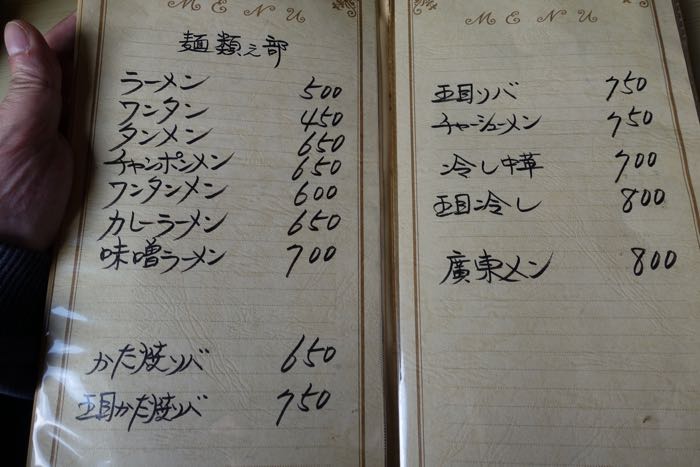 MENU
麺類之部
ラーメン 500
ワンタン 450
タンメン 650
チャンポンメン 650
ワンタンメン 600
カレーラーメン 650
味噌ラーメン 700
かた焼ソバ 650
五目かた焼ソバ 750
MENU
五目ソバ 750
チャーシューメン 750
冷し中華 700
五目冷し 800
廣東メン 800